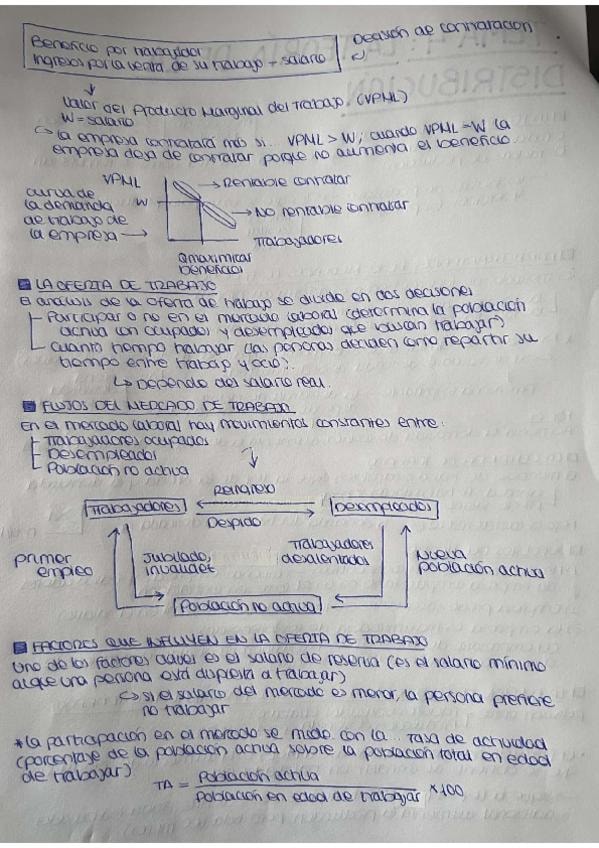 Beneficio por trabajador
Ingresos por la venta de su trabajo - salario
Decisión de contratación
Valor del Producto Marginal del Trabajo (VPML)
W = salario
La empresa contratará más si... VPML > W; cuando VPML = W la
empresa deja de contratar porque no aumenta el beneficio
VPML
Rentable contratar
curva de
la demanda
de trabajo de
la empresa
W
No rentable contratar
Trabajadores
Qmaximizar
beneficios
LA OFERTA DE TRABAJO
El análisis de la oferta de trabajo se divide en dos decisiones
Participar o no en el mercado laboral (determina la población
activa con ocupados y desempleados que buscan trabajar)
Cuanto tiempo trabajar (las personas deciden como repartir su
tiempo entre trabajo y ocio).
Depende del salario real.
FLUJOS DEL MERCADO DE TRABAJO
En el mercado laboral hay movimientos constantes entre:
Trabajadores ocupados
Desempleados
Población no activa
Reingreso
Trabajadores
Desempleados
Despido
primer
empleo
Jubilado,
invalidez
Trabajadores
desalentados
Nueva
población activa
Población no activa
FACTORES QUE INFLUYEN EN LA OFERTA DE TRABAJO
Uno de los factores claves es el salario de reserva (es el salario mínimo
al que una persona está dispuesta a trabajar)
si el salario del mercado es menor, la persona prefiere
no trabajar
*La participación en el mercado se mide con la... Tasa de actividad
(porcentaje de la población activa sobre la población total en edad
de trabajar)
TA = Población activa
Población en edad de trabajar × 100